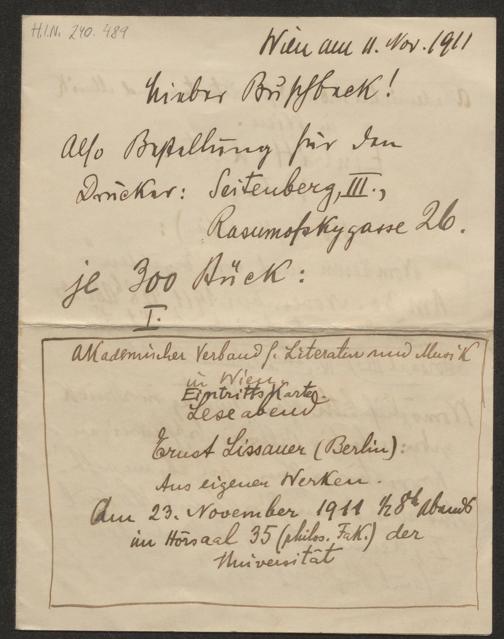 H.I.N. 240.489
Wien am 11. Nov. 1911
Lieber Buschbeck!
Also Bestellung für den
Drucker: Seitenberg, III.,
Rasumofskygasse 26.
je 300 Stück:
I.
Akademischer Verband f. Literatur und Musik
in Wien.
Eintrittskarte.
Leseabend
Ernst Lissauer (Berlin):
Aus eigenen Werken.
Am 23. November 1911 ½ 8h Abends
im Hörsaal 35 (philos. Fak.) der
Universität